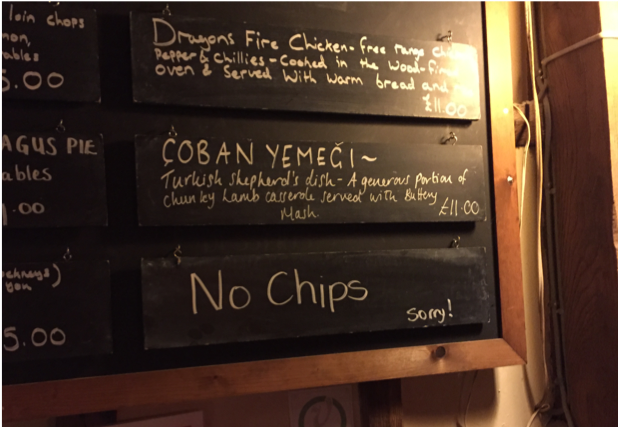 loin chops
mon,
ables
5.00
AGUS PIE
ables
.00
5.00
Dragons Fire Chicken - free range
Pepper & Chillies - Cooked in the Wood-fir
oven & Served With Warm bread and
£11.00
ÇOBAN YEMEĞI ~
Turkish shepherd's dish - A generous portion of
chunky Lamb casserole served with Buttery
Mash. £11.00
No Chips
sorry!